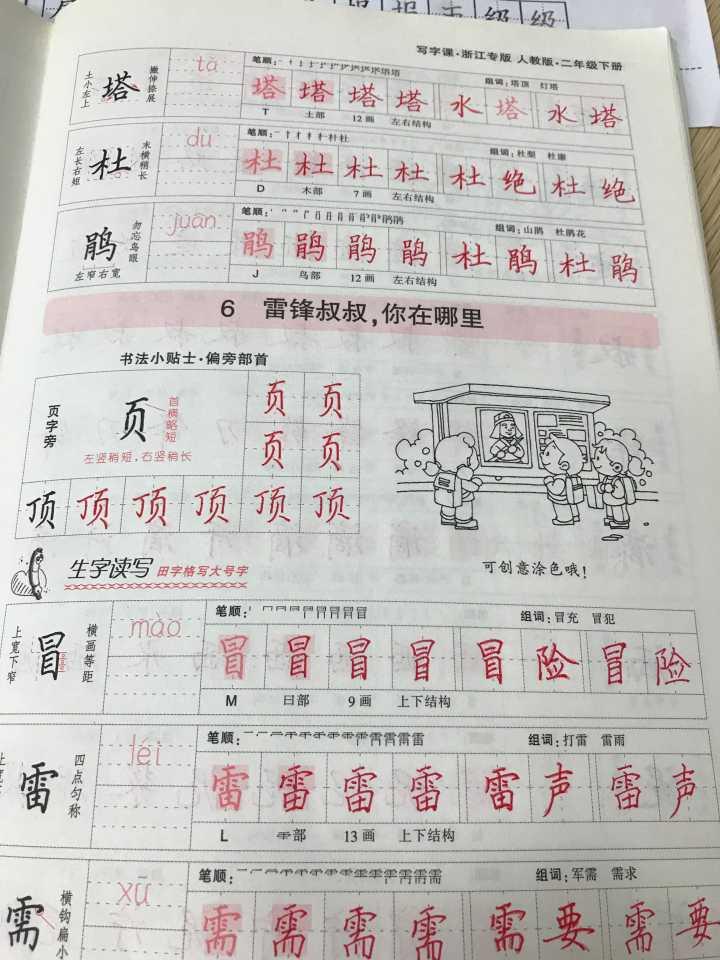 报 声 级 级
写字课·浙江专版 人教版·二年级下册
土小左上
塔
撇伸捺展
tǎ
笔顺:
组词:塔顶 灯塔
塔 塔 塔 塔 水 塔 水 塔
T 土部 12画 左右结构
左长右短
杜
末横稍长
dù
笔顺:
组词:杜梨 杜康
杜 杜 杜 杜 杜 绝 杜 绝
D 木部 7画 左右结构
鹃
勿忘鸟眼
左窄右宽
juān
笔顺:
组词:山鹃 杜鹃花
鹃 鹃 鹃 鹃 杜 鹃 杜 鹃
J 鸟部 12画 左右结构
6 雷锋叔叔,你在哪里
书法小贴士·偏旁部首
页字旁
页
首横略短
左竖稍短,右竖稍长
页 页
页 页
顶 顶 顶 顶 顶 顶
可创意涂色哦!
生字读写 田字格写大号字
上宽下窄
冒
横画等距
mào
笔顺:
组词:冒充 冒犯
冒 冒 冒 冒 冒 险 冒 险
M 曰部 9画 上下结构
雷
四点匀称
léi
笔顺:
组词:打雷 雷雨
雷 雷 雷 雷 雷 声 雷 声
L 部 13画 上下结构
需
横钩扁小
xū
笔顺:
组词:军需 需求
需 需 需 需 需 要 需 要